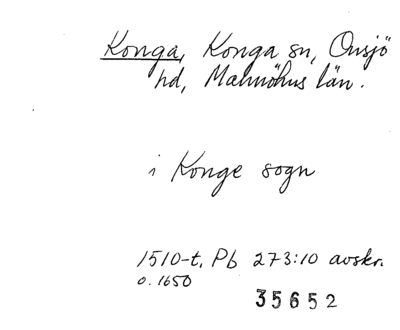 Konga, Konga sn, Onsjö
hd, Malmöhus län.
i Konge sogn
1510-t, Pb 273:10 avskr.
o. 1650
35652